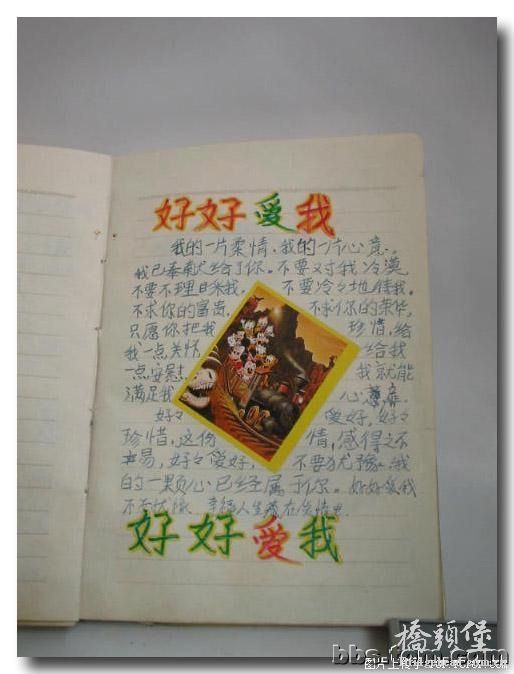 好好爱我
我的一片柔情、我的一片心意。
我已奉献给了你。不要对我冷漠
不要不理日米我, 不要冷冷地待我。
不求你的富贵, 不求你的荣华,
只愿你把我 珍惜,给
我一点关怀 给我
一点安慰 我就能
满足我 心意
好々 爱好,好々
珍惜,这份 情,感得之不
易,好々爱好, 不要犹豫,我
的一颗心已经属于你。好好爱我
不要犹豫 幸福人生藏在
好好爱我
橋頭堡
bbs.
图片上传于